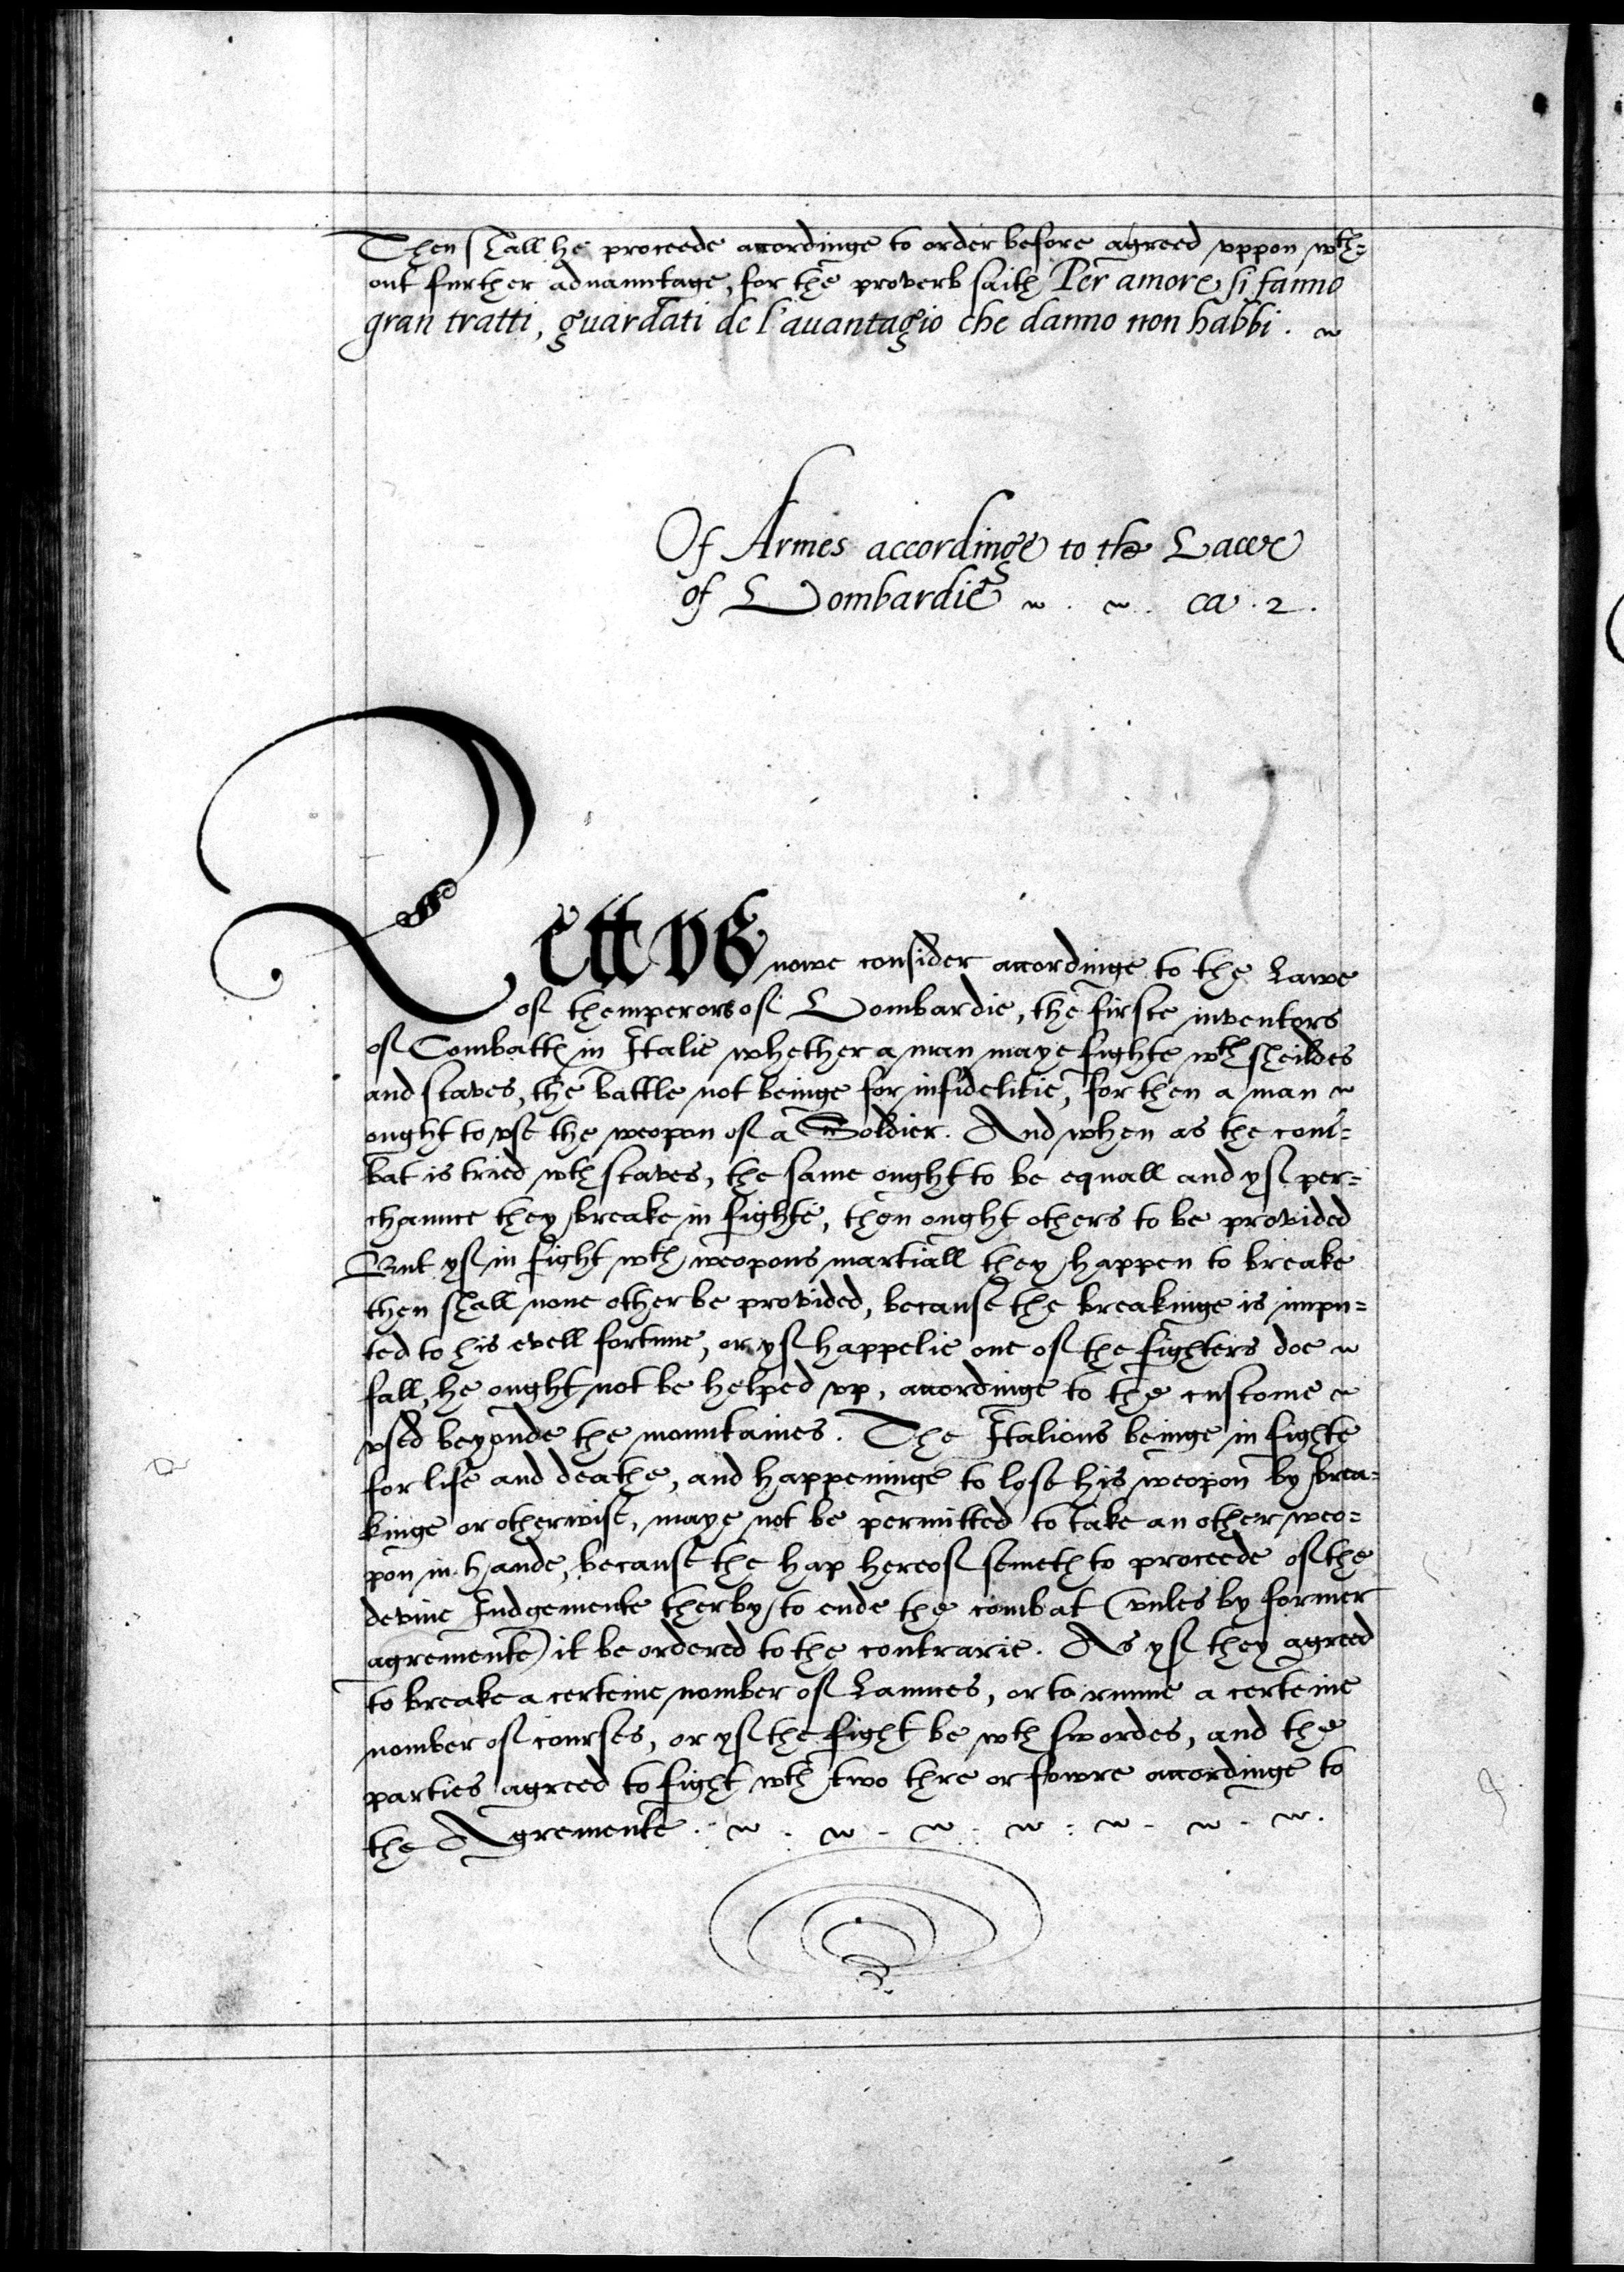 Then shall he proceede accordinge to order before agreed vppon wth=
out further aduauntage, for the proverb saith Per amore si fanno
gran tratti, guardati de l'auantagio che danno non habbi.
Of Armes accordinge to the Lawe
of Lombardie ca. 2.
Lett vs nowe consider accordinge to the Lawe
of themperors of Lombardie, the firste inventors
of Combatt in Italie whether a man maye fighte wth sheildes
and staves, the battle not beinge for infidelitie, for then a man
ought to vse the weopon of a Soldier. And when as the com=
bat is tried wth staves, the same ought to be equall and yf per=
chaunce they breake in fighte, then ought others to be provided
But yf in fight wth weopons martiall they happen to breake
then shall none other be provided, because the breakinge is impu=
ted to his evell fortune, or yf happelie one of the fighters doe
fall, he ought not be helped vp, accordinge to the custome
vsed beyonde the mountaines. The Italions beinge in fighte
for life and deathe, and happeninge to lose his weopon by brea=
kinge or otherwise, maye not be permitted to take an other weo=
pon in hande, because the hap hereof semeth to proceede of the
devine Iudgemente therby to ende the combat (vnles by former
agremente) it be ordered to the contrarie. As yf they agreed
to breake a certeine nomber of Launces, or to runne a certeine
nomber of courses, or yf the fight be wth swordes, and the
parties agreed to fight wth two thre or fowre accordinge to
the Agremente.